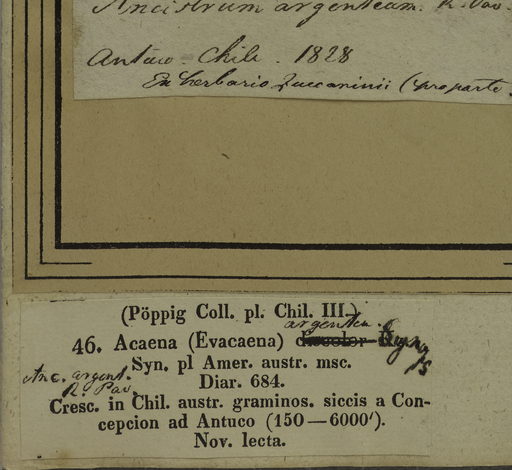 Ancistrum argenteum. R. Pav.
Antuco - Chile. 1828
Ex herbario Zuccarinii (pro parte
(Pöppig Coll. pl. Chil. III.)
argentea.
46. Acaena (Evacaena)
Syn. pl Amer. austr. msc.
Anc. argent.
R. Pav.
Diar. 684.
Cresc. in Chil. austr. graminos. siccis a Con-
cepcion ad Antuco (150—6000').
Nov. lecta.